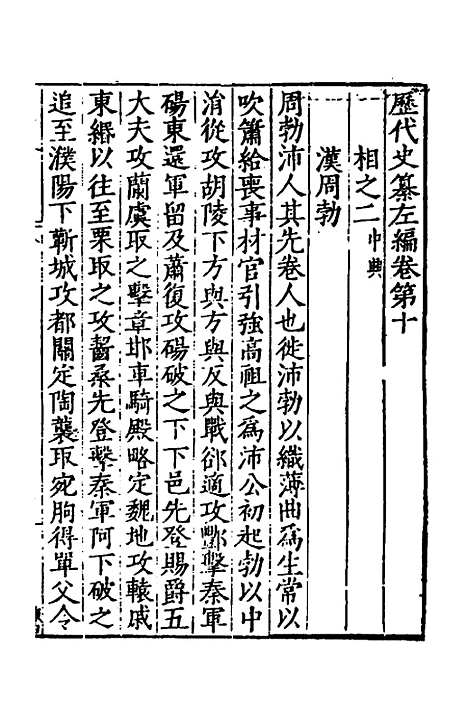 歷代史纂左編卷第十
相之二 中興
漢周勃
周勃沛人其先卷人也徙沛勃以織薄曲爲生常以
吹簫給喪事材官引強高祖之爲沛公初起勃以中
涓從攻胡陵下方與方與反與戰郤適攻酆擊秦軍
碭東還軍留及蕭復攻碭破之下下邑先登賜爵五
大夫攻蘭虞取之擊章邯車騎殿略定魏地攻轅戚
東緡以往至栗取之攻齧桑先登擊秦軍阿下破之
追至濮陽下脿城攻都關定陶襲取宛朐得單父令